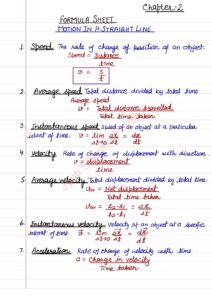 Chapter-2
FORMULA SHEET
MOTION IN A STRAIGHT LINE
1. Speed The rate of change of position of an object.
Speed = Distance / time
v = s/t
2. Average speed Total distance divided by total time
Average speed
v = Total distance travelled / Total time taken
3. Instantaneous speed Speed of an object at a particular
instant of time. v = lim Δt→0 Δx/Δt = dx/dt
4. Velocity Rate of change of displacement with direction.
v = displacement / time
5. Average velocity Total displacement divided by total time.
Vav = Net displacement / Total time taken
Vav = x2 - x1 / t2 - t1 = Δx/Δt
6. Instantaneous velocity Velocity of an object at a specific
instant of time v = lim Δt→0 Δx/Δt = dx/dt
7. Acceleration Rate of change of velocity with time
a = Change in velocity / Time taken